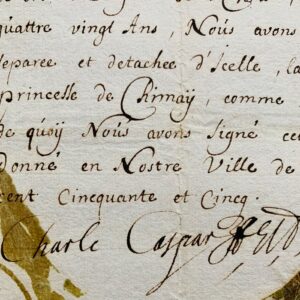 quattre vingt Ans, Nous avons
separee et detachee d'Icelle, la
princesse de Chimaÿ, comme
de quoÿ Nous avons signé ce
donné en Nostre Ville de
cent Cinequante et Cinq.
Charle Caspar